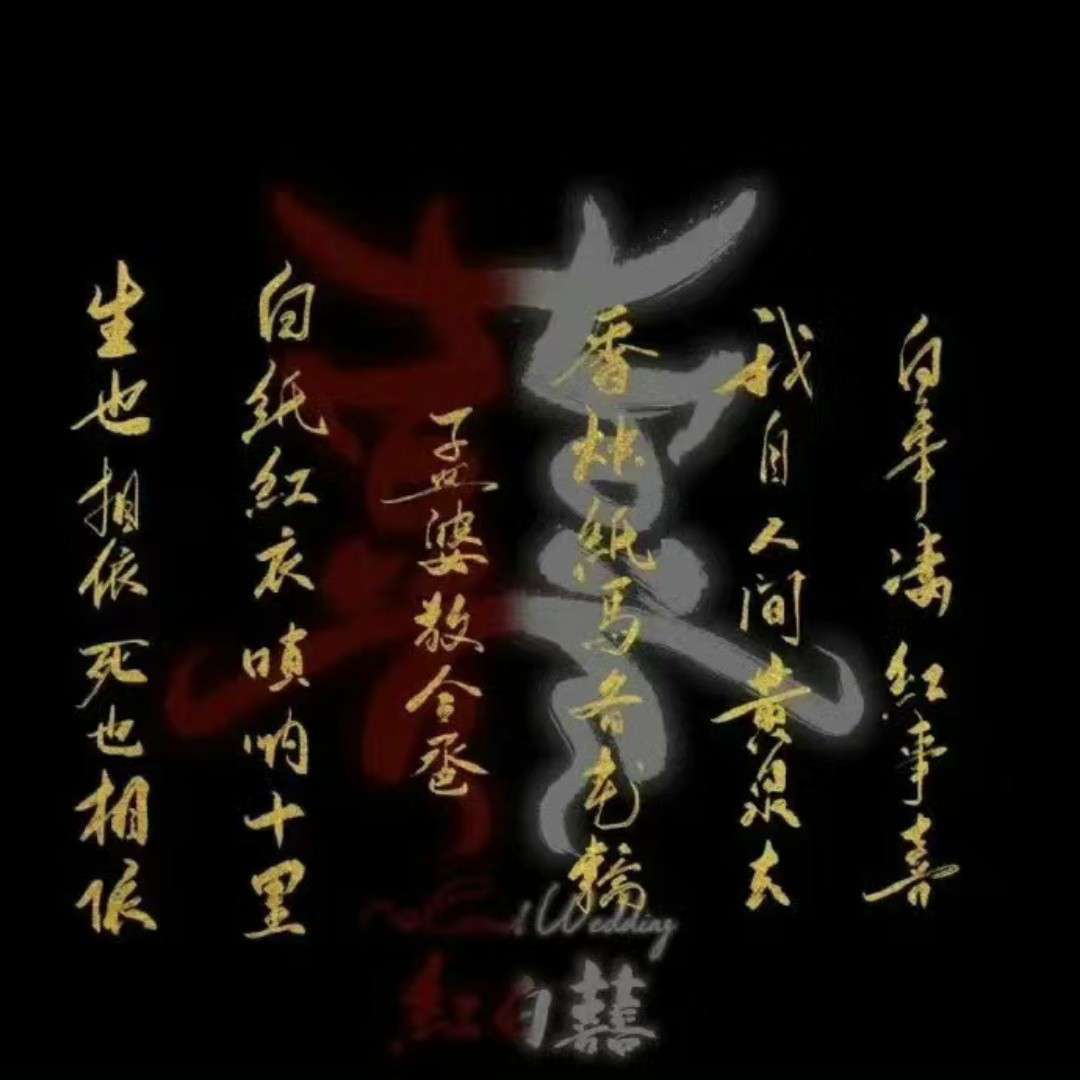 白事凄 红事喜
我自人间黄泉去
香烛纸马花轿
孟婆敬合卺
白纸红衣唢呐十里
生也相依死也相依
囍
Wedding
紅白囍